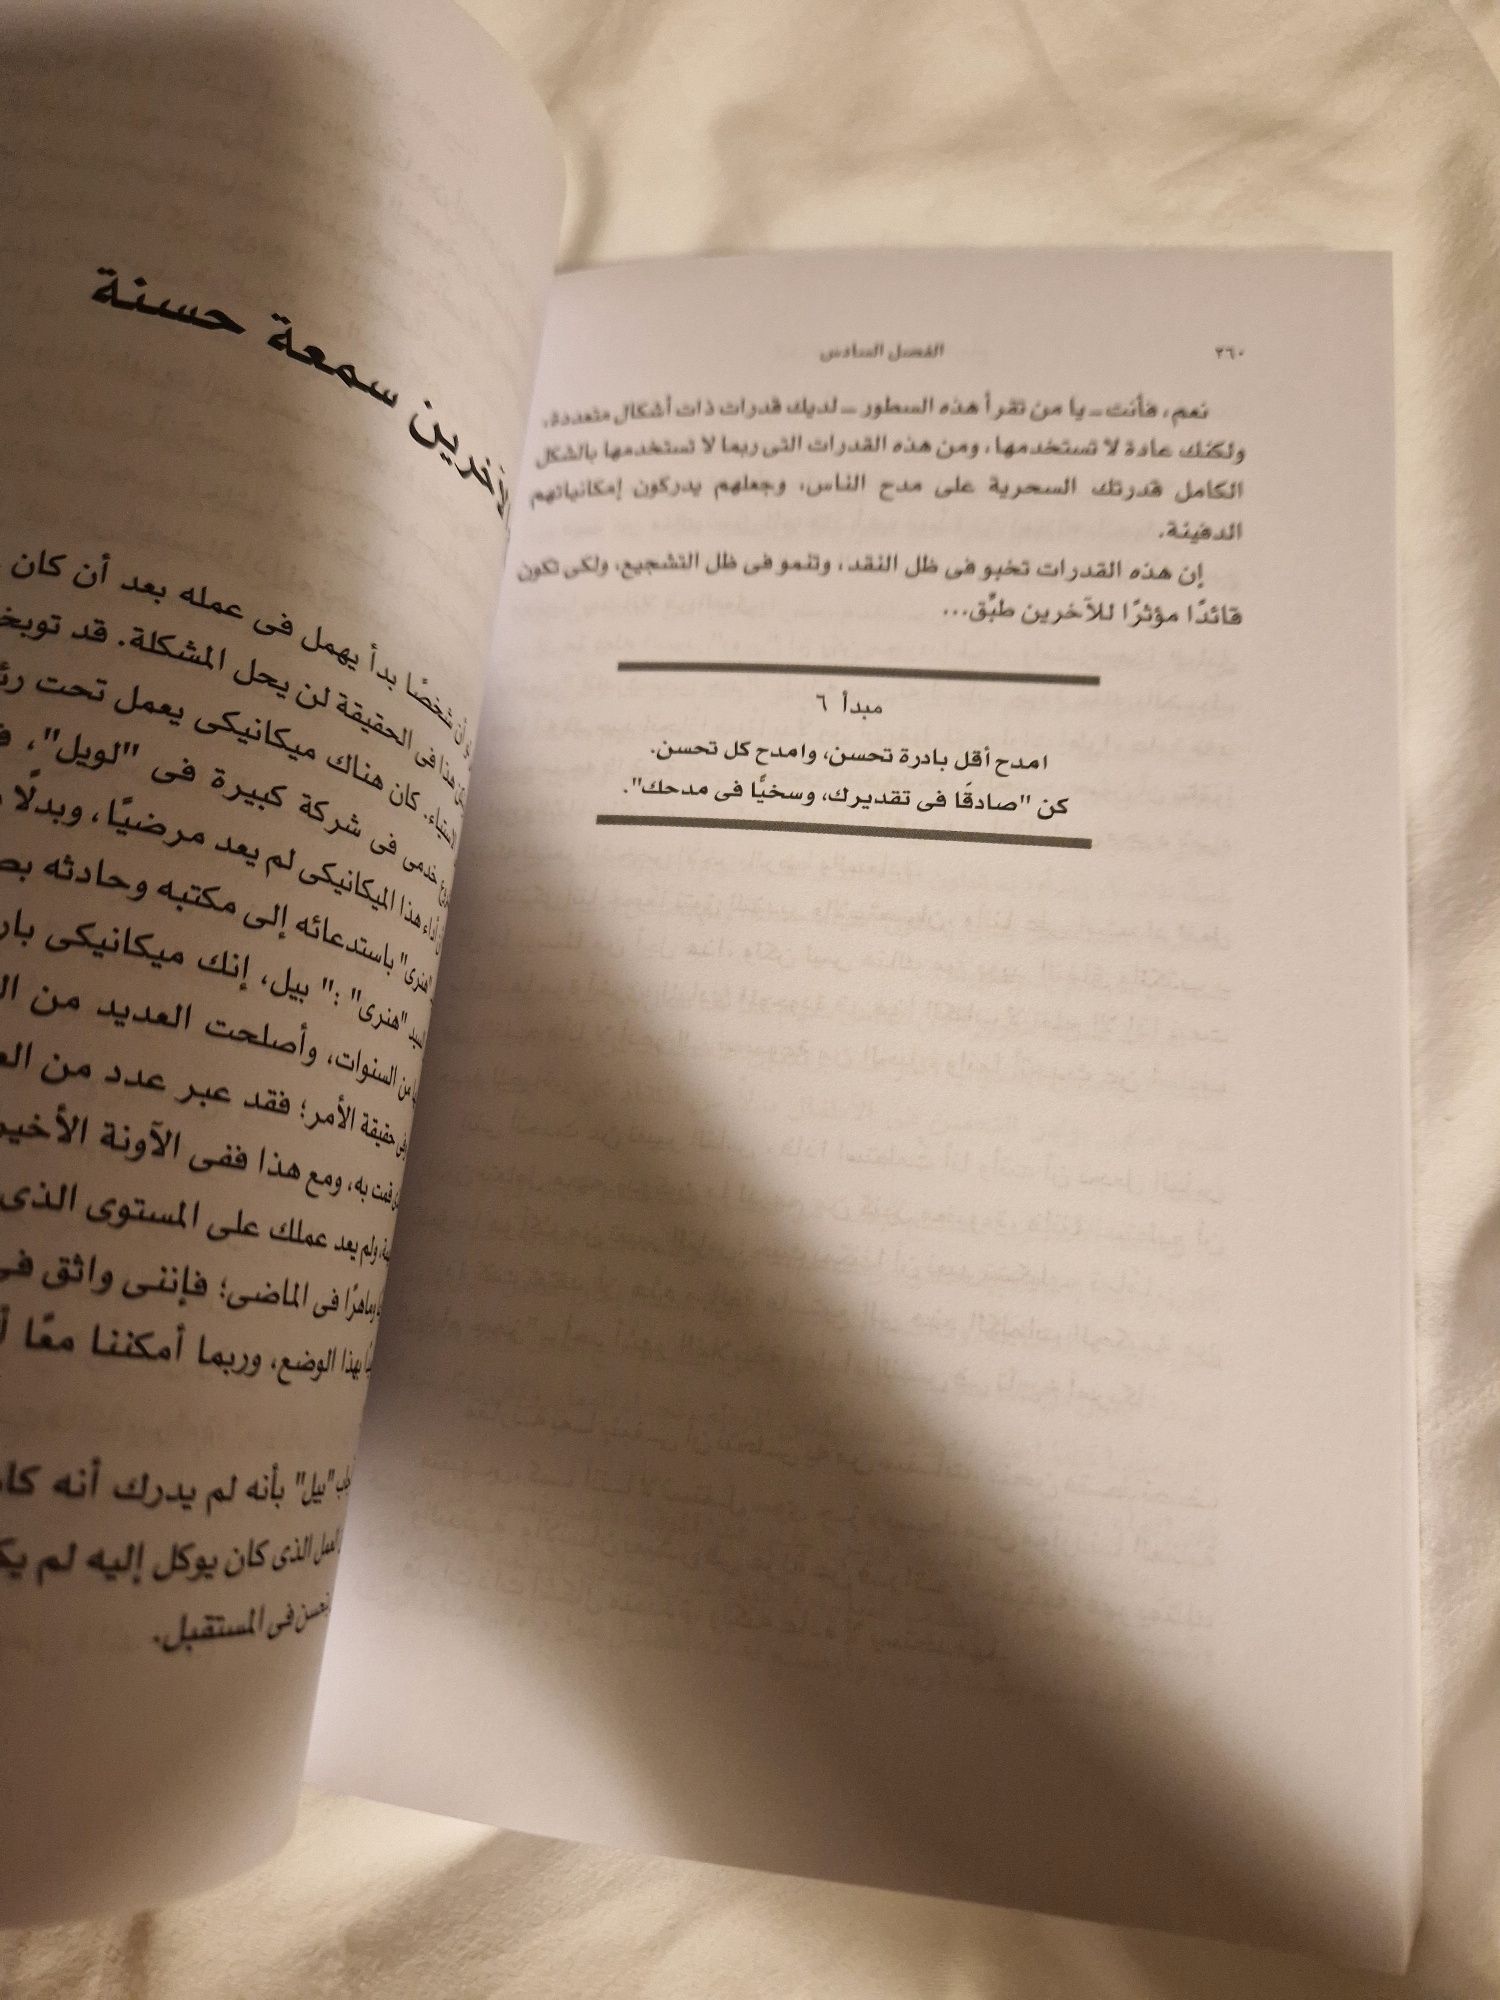 ٢٦٠
الفصل السادس
نعم، فأنت ـ يا من تقرأ هذه السطور ـ لديك قدرات ذات أشكال متعددة،
ولكنك عادة لا تستخدمها، ومن هذه القدرات التى ربما لا تستخدمها بالشكل
الكامل قدرتك السحرية على مدح الناس، وجعلهم يدركون إمكانياتهم
الدفينة.
إن هذه القدرات تخبو فى ظل النقد، وتنمو فى ظل التشجيع، ولكى تكون
قائدًا مؤثرًا للآخرين طبِّق...
مبدأ ٦
امدح أقل بادرة تحسن، وامدح كل تحسن.
كن "صادقًا فى تقديرك، وسخيًّا فى مدحك".
سمعة حسنة
أن شخصًا بدأ يهمل فى عمله بعد أن كان
هذا فى الحقيقة لن يحل المشكلة. قد
كان هناك ميكانيكى يعمل تحت
خدمى فى شركة كبيرة فى "لويل"،
أداء هذا الميكانيكى لم يعد مرضيًّا، وبدلًا
"هنرى" باستدعائه إلى مكتبه وحادثه
"هنرى": "بيل، إنك ميكانيكى
من السنوات، وأصلحت العديد من
حقيقة الأمر؛ فقد عبر عدد من
قمت به، ومع هذا ففى الآونة
ولم يعد عملك على المستوى الذى
فى الماضى؛ فإننى واثق
بهذا الوضع، وربما أمكننا معًا
"بيل" بأنه لم يدرك أنه
العمل الذى كان يوكل إليه لم
فى المستقبل.